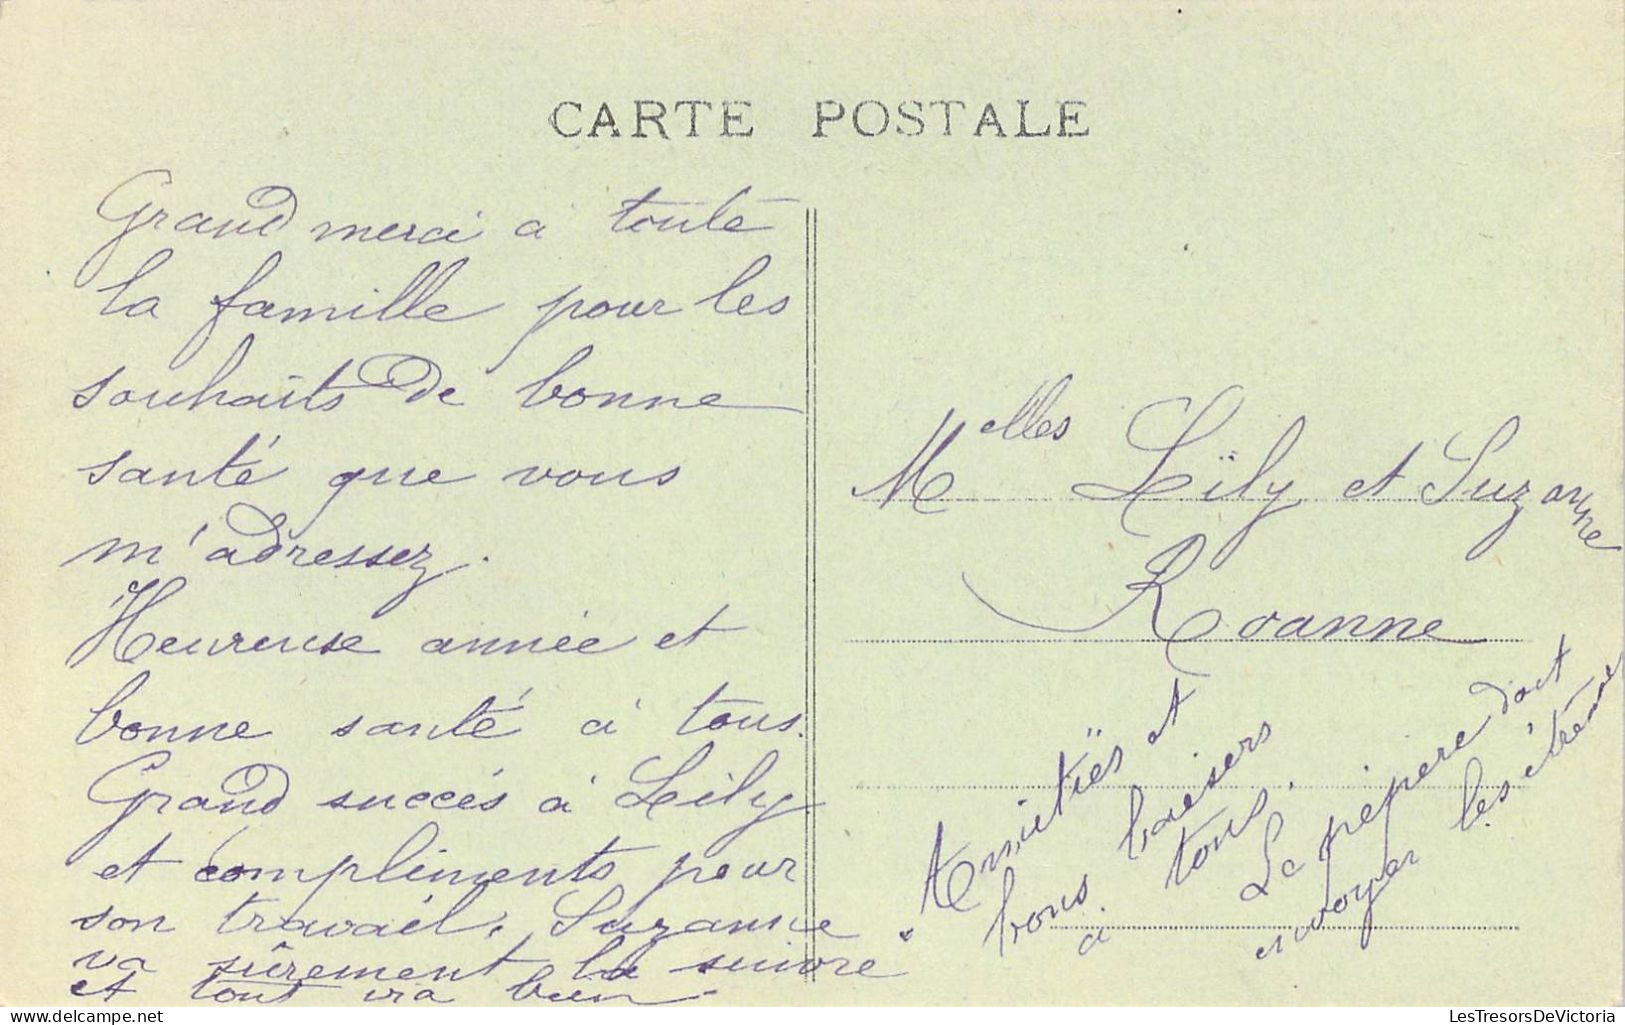 CARTE POSTALE
Grand merci à toute
la famille pour les
souhaits de bonne
santé que vous
m'adressez.
Heureuse année et
bonne santé à tous.
Grand succés à Leily
et compliments pour
son travail. Suzanne
va sûrement la suivre
et tout ira bien.
Melles Leïly et Suzanne
Roanne
Amitiés et
bons baisers
à tous.
Le pépère doit
envoyer les étrenne
LesTresorsDeVictoria